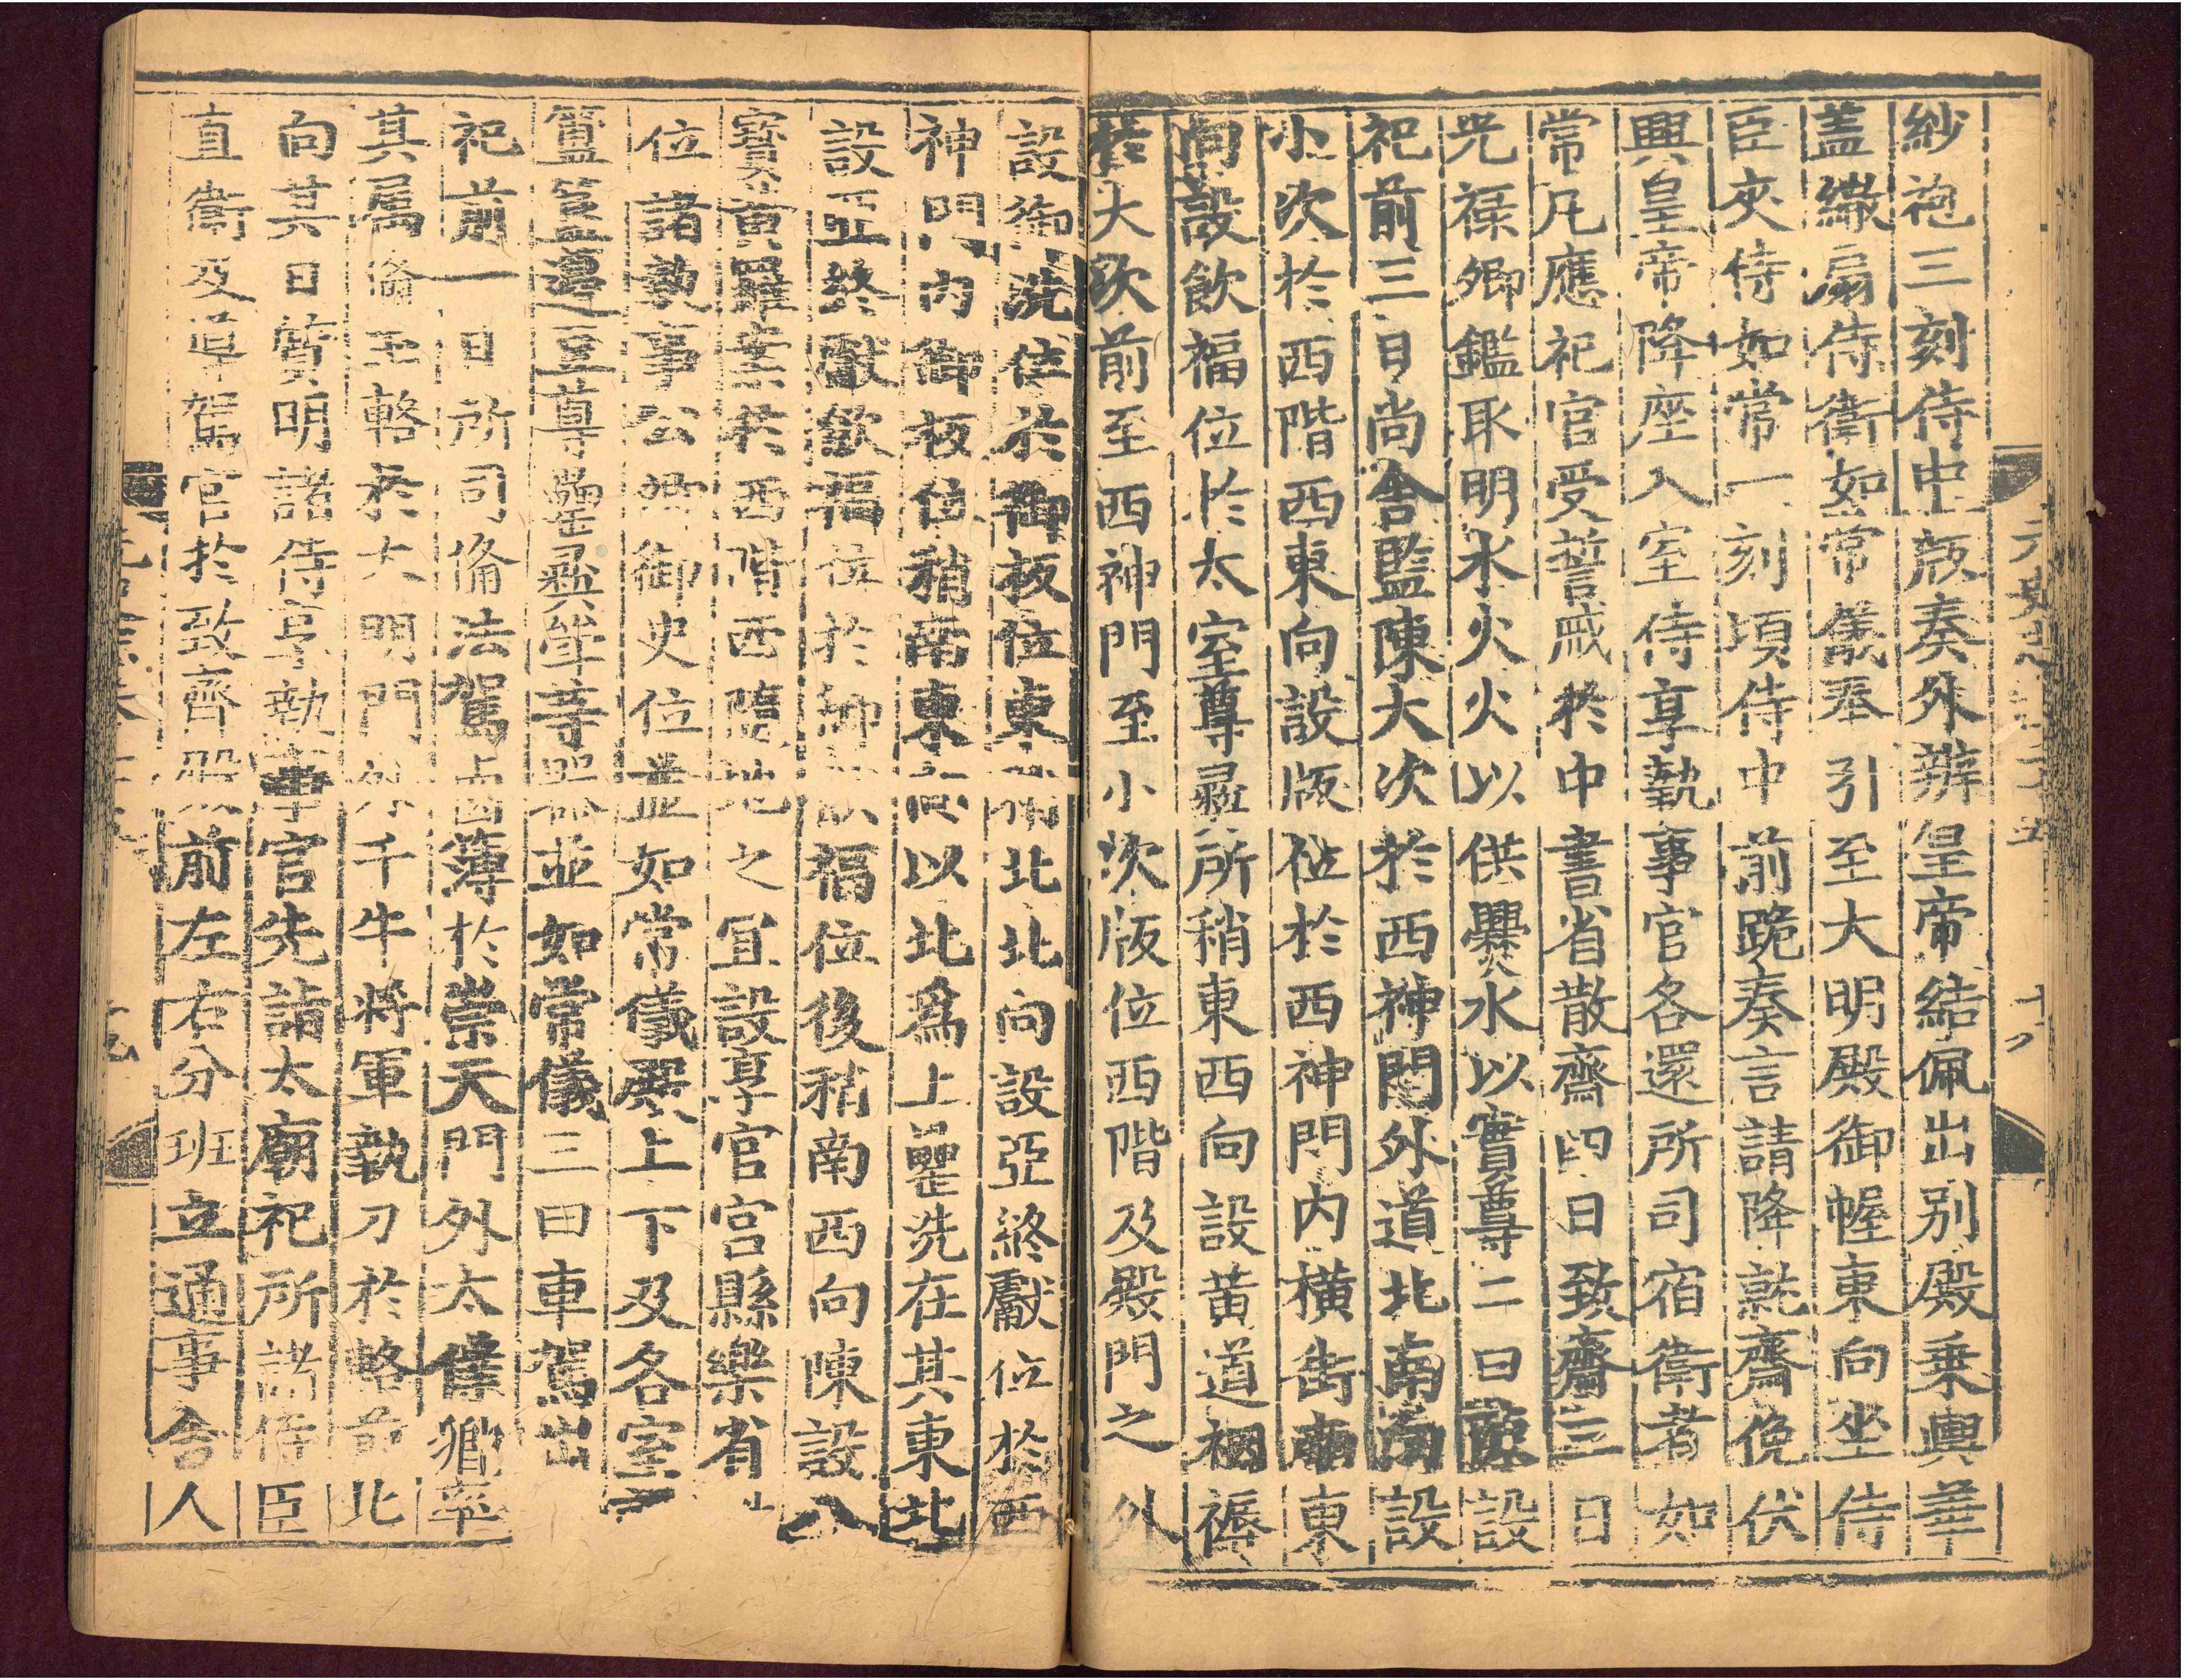 紗袍三刻侍中版奏外辦皇帝結佩出别殿乗輿華
盖繖扇侍衛如常儀奉引至大明殿御幄東向坐侍
臣夾侍如常一刻頃侍中前跪奏言請降就齋俛伏
興皇帝降座入室侍享執事官各還所司宿衛者如
常凡應祀官受誓戒於中書省散齋四日致齋三日
光祿卿鑑取明水火火以供爨水以實尊二曰陳設
祀前三日尚舎監陳大次於西神門外道北南向設
小次於西階西東向設版位於西神門内横街南東
向設飲福位於太室尊彛所稍東西向設黄道裀褥
於大次前至西神門至小次版位西階及殿門之外
設御洗位於御板位東稍北北向設亞終獻位於西
神門内御板位稍南東向以北爲上罍洗在其東北
設亞終獻飲福位於御飲福位後稍南西向陳設八
寶黄羅案於西階西隨地之宜設享官宫縣樂省
位諸執事公卿御史位並如常儀殿上下及各室
簠簋籩豆尊罍彛斝等器並如常儀三曰車駕出
祀前一日所司備法駕鹵簿於崇天門外太僕卿率
其属備玉輅於大明門外千牛將軍執刀於輅前北
向其日質明諸侍享執事官先詣太廟祀所諸侍臣
直衛及導駕官於致齋殿前左右分班立通事舎人